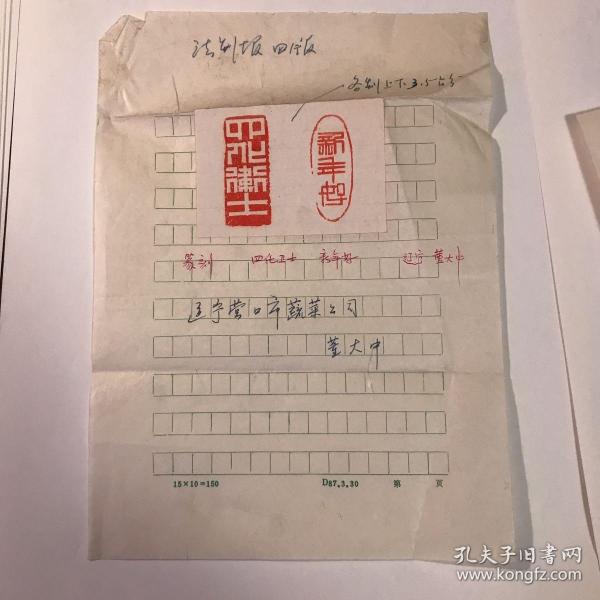 法制报 四版
各制上下3.5公分
四化衛士
新年好
篆刻 四化卫士 新年好 辽宁 董大中
辽宁营口市蔬菜公司
董大中
15×10=150 D87.3.30 第 页
孔夫子旧书网
www.kongfz.com